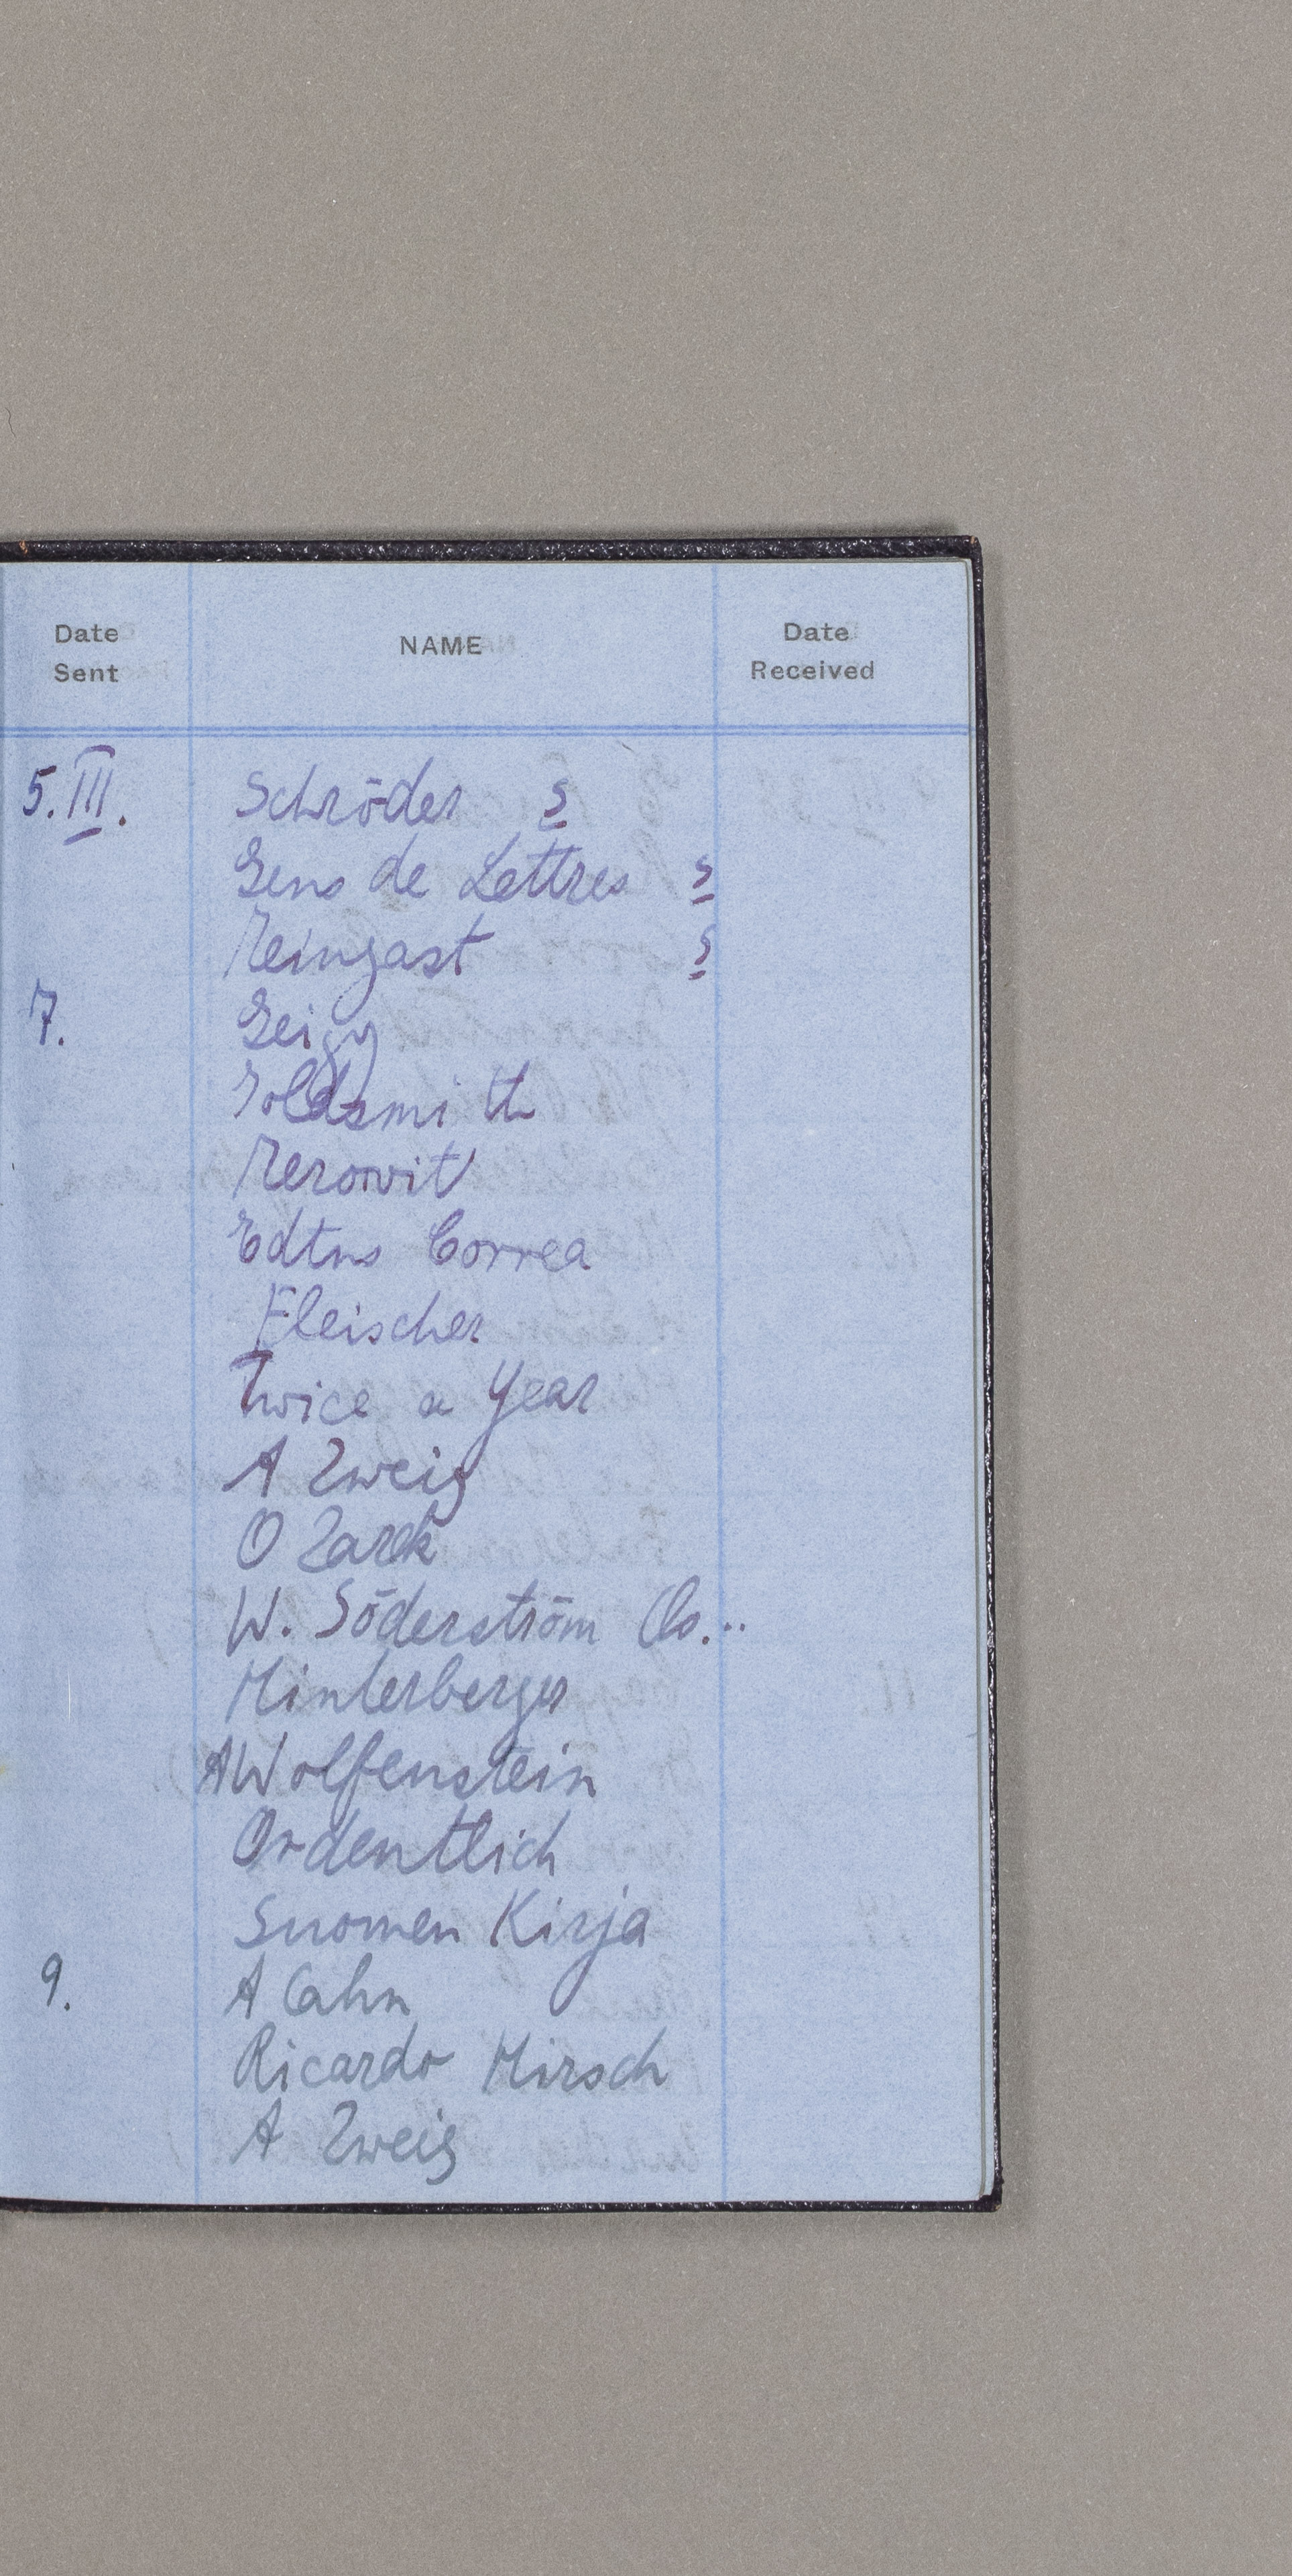 Date Sent NAME Date Received
5.III. Schröder s
Gens de Lettres s
Reingast s
7. Geigy
Goldsmith
Merowit
Edtns Correa
Fleischer
Twice a Year
A Zweig
O Zarek
W. Söderström Co...
Hinterberger
A Wolfenstein
Ordentlich
Suomen Kirja
9. A Cahn
Ricardo Hirsch
A Zweig